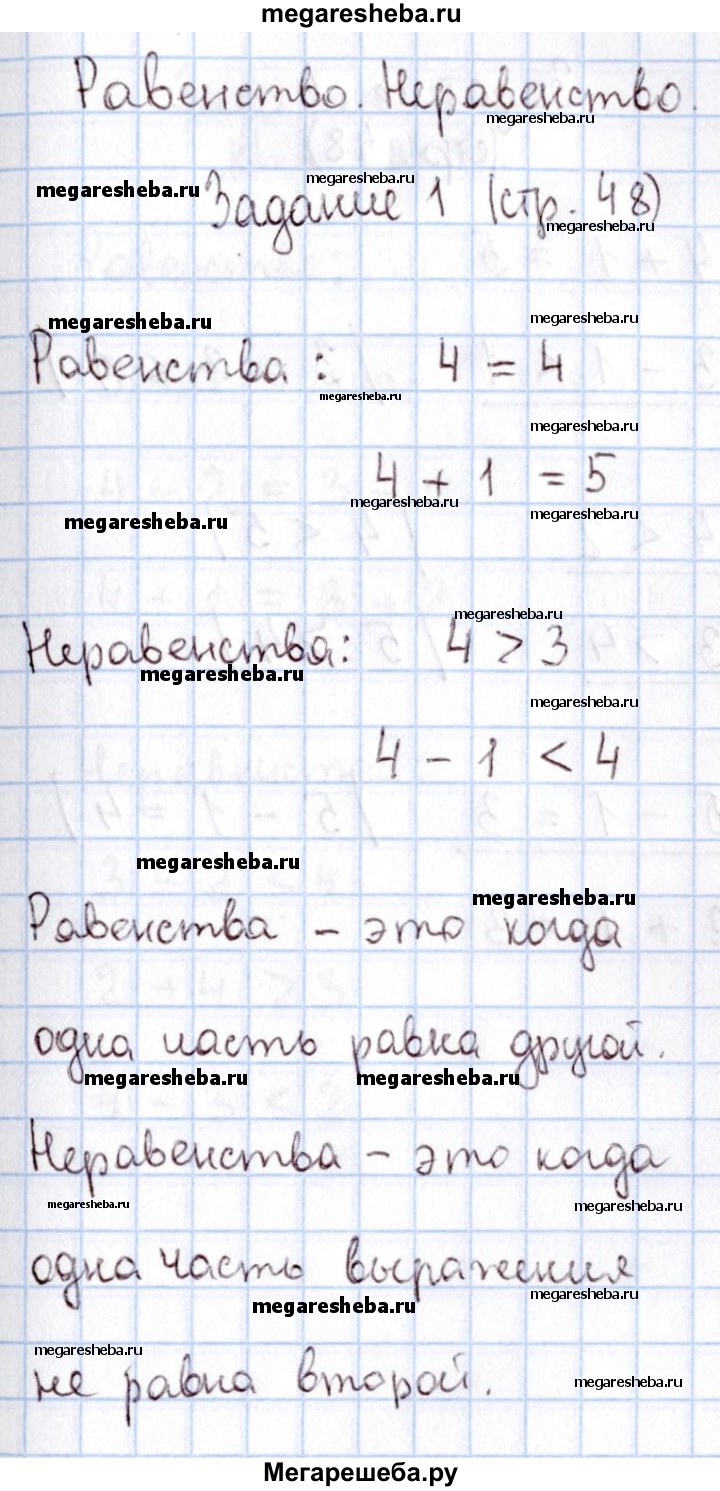 megaresheba.ru
Равенство. Неравенство.
megaresheba.ru
megaresheba.ru
megaresheba.ru
Задание 1 (стр. 48)
megaresheba.ru
megaresheba.ru
megaresheba.ru
Равенства: 4 = 4
megaresheba.ru
megaresheba.ru
4 + 1 = 5
megaresheba.ru
megaresheba.ru
megaresheba.ru
megaresheba.ru
Неравенства: 4 > 3
megaresheba.ru
megaresheba.ru
4 - 1 < 4
megaresheba.ru
megaresheba.ru
Равенства - это когда
одна часть равна другой.
megaresheba.ru megaresheba.ru
Неравенства - это когда
megaresheba.ru megaresheba.ru
одна часть выражения
megaresheba.ru
megaresheba.ru
megaresheba.ru
не равна второй.
megaresheba.ru
Мегарешеба.ру